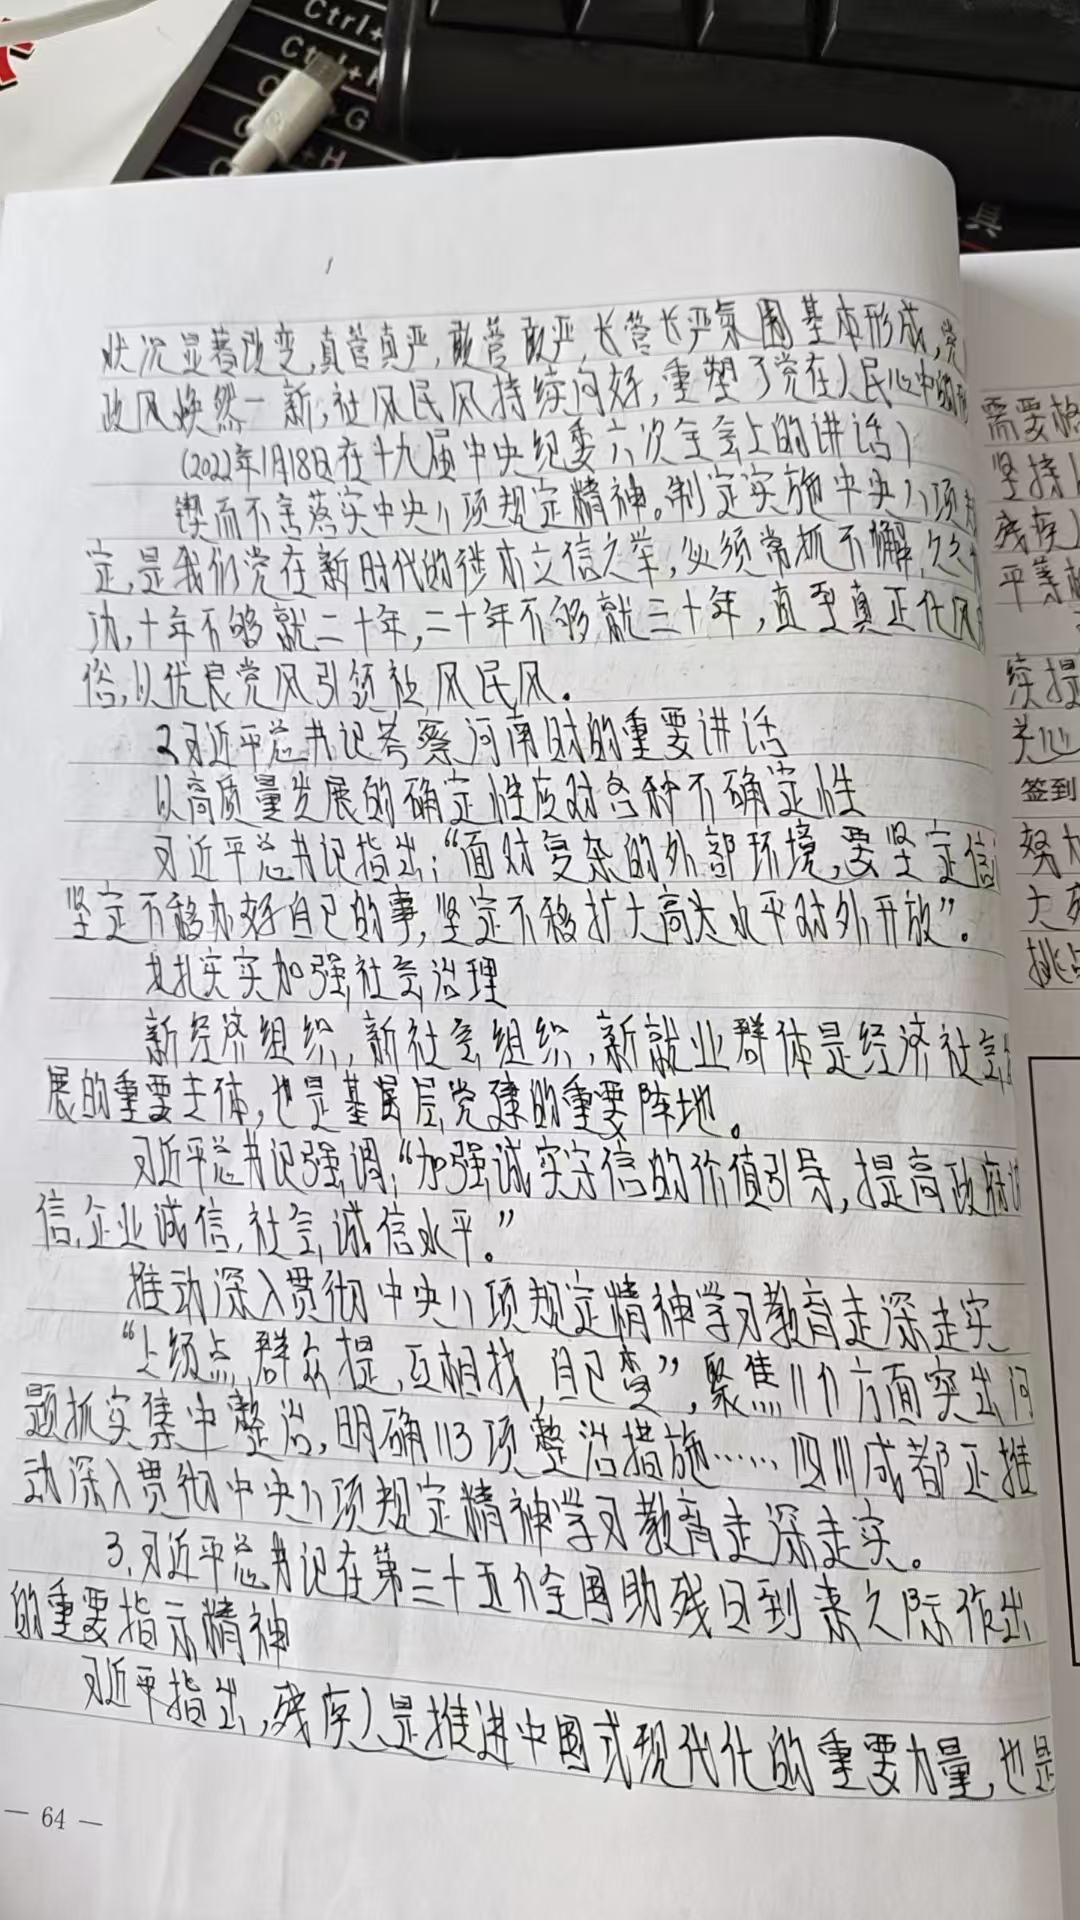 Ctrl+
Ctrl+
G
+H
状况显著改变,真管真严,敢管敢严,长管长严氛围基本形成,党
政风焕然一新,社风民风持续向好,重塑了党在人民心中的形
(2022年1月18日在十九届中央纪委六次全会上的讲话)
锲而不舍落实中央八项规定精神。制定实施中央八项规
定,是我们党在新时代的徙木立信之举,必须常抓不懈,久久
功,十年不够就二十年,二十年不够就三十年,直至真正化风
俗,以优良党风引领社风民风。
2习近平总书记考察河南时的重要讲话
以高质量发展的确定性应对各种不确定性
习近平总书记指出:“面对复杂的外部环境,要坚定信
坚定不移办好自己的事,坚定不移扩大高水平对外开放”。
扎扎实实加强社会治理
新经济组织,新社会组织,新就业群体是经济社会
展的重要主体,也是基层党建的重要阵地。
习近平总书记强调:“加强诚实守信的价值引导,提高政府
信,企业诚信,社会诚信水平。”
推动深入贯彻中央八项规定精神学习教育走深走实
“上级点,群众提,互相找,自己查”,聚焦11个方面突出问
题抓实集中整治,明确113项整治措施……四川成都正推
动深入贯彻中央八项规定精神学习教育走深走实。
3,习近平总书记在第三十五个全国助残日到来之际作出
的重要指示精神
习近平指出,残疾人是推进中国式现代化的重要力量,也是
— 64 —
需要格
坚持
残疾人
平等
续提
关心
签到
努力
大
挑